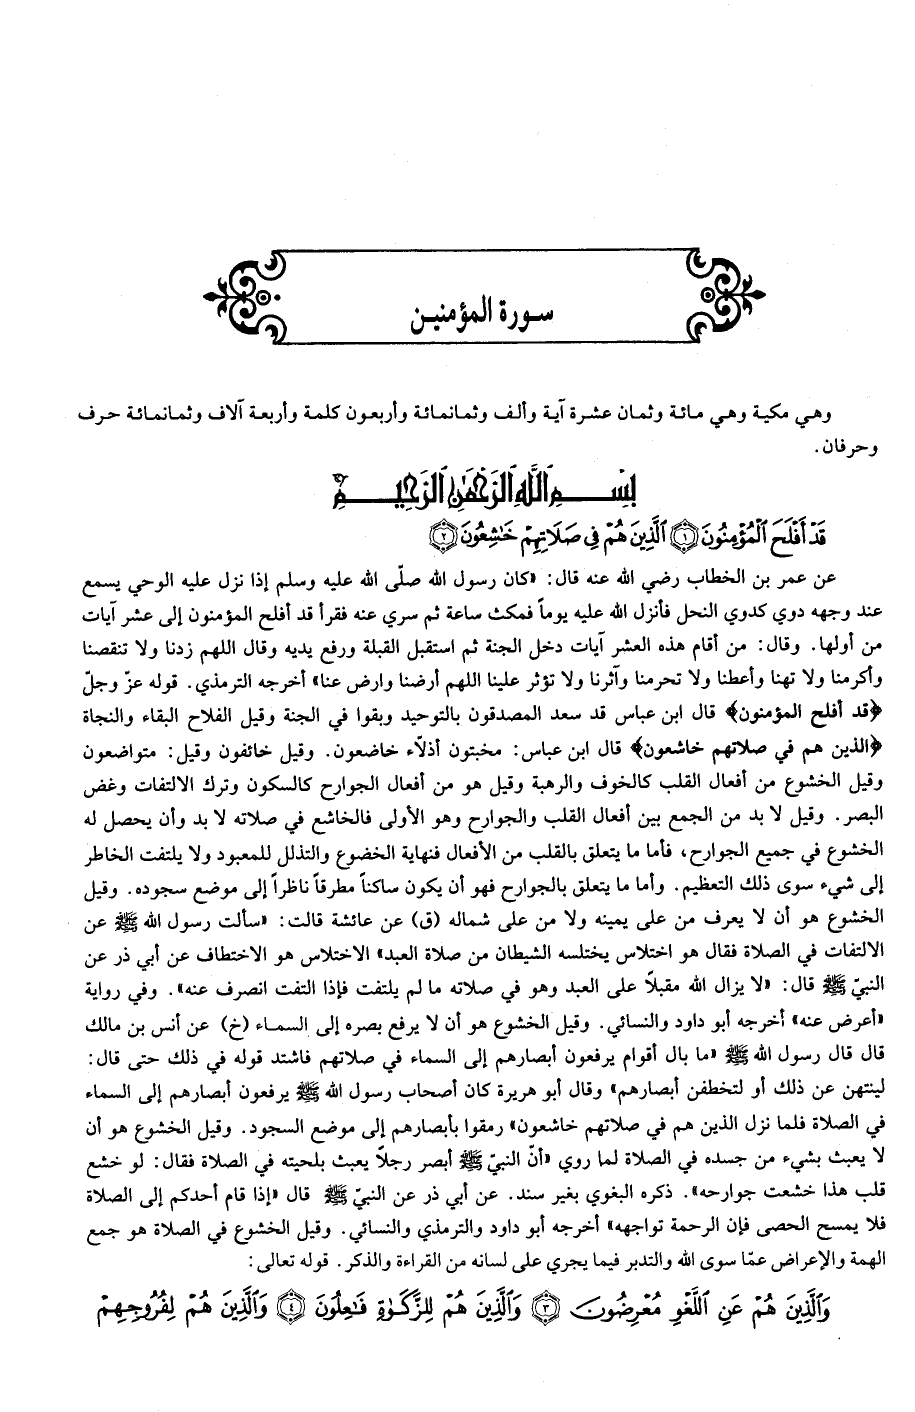 سورة المؤمنين
وهي مكية وهي مائة وثمان عشرة آية وألف وثمانمائة وأربعون كلمة وأربعة آلاف وثمانمائة حرف
وحرفان.
بِسْمِ اللَّهِ الرَّحْمَٰنِ الرَّحِيمِ
قَدْ أَفْلَحَ الْمُؤْمِنُونَ ﴿١﴾ الَّذِينَ هُمْ فِي صَلَاتِهِمْ خَاشِعُونَ ﴿٢﴾
عن عمر بن الخطاب رضي الله عنه قال: «كان رسول الله صلّى الله عليه وسلم إذا نزل عليه الوحي يسمع
عند وجهه دوي كدوي النحل فأنزل الله عليه يوماً فمكث ساعة ثم سري عنه فقرأ قد أفلح المؤمنون إلى عشر آيات
من أولها. وقال: من أقام هذه العشر آيات دخل الجنة ثم استقبل القبلة ورفع يديه وقال اللهم زدنا ولا تنقصنا
وأكرمنا ولا تهنا وأعطنا ولا تحرمنا وآثرنا ولا تؤثر علينا اللهم أرضنا وارض عنا» أخرجه الترمذي. قوله عزّ وجلّ
﴿قد أفلح المؤمنون﴾ قال ابن عباس قد سعد المصدقون بالتوحيد وبقوا في الجنة وقيل الفلاح البقاء والنجاة
﴿الذين هم في صلاتهم خاشعون﴾ قال ابن عباس: مخبتون أذلّاء خاضعون. وقيل خائفون وقيل: متواضعون
وقيل الخشوع من أفعال القلب كالخوف والرهبة وقيل هو من أفعال الجوارح كالسكون وترك الالتفات وغض
البصر. وقيل لا بد من الجمع بين أفعال القلب والجوارح وهو الأولى فالخاشع في صلاته لا بد وأن يحصل له
الخشوع في جميع الجوارح، فأما ما يتعلق بالقلب من الأفعال فنهاية الخضوع والتذلل للمعبود ولا يلتفت الخاطر
إلى شيء سوى ذلك التعظيم. وأما ما يتعلق بالجوارح فهو أن يكون ساكناً مطرقاً ناظراً إلى موضع سجوده. وقيل
الخشوع هو أن لا يعرف من على يمينه ولا من على شماله (ق) عن عائشة قالت: «سألت رسول الله ﷺ عن
الالتفات في الصلاة فقال هو اختلاس يختلسه الشيطان من صلاة العبد» الاختلاس هو الاختطاف عن أبي ذر عن
النبيّ ﷺ قال: «لا يزال الله مقبلاً على العبد وهو في صلاته ما لم يلتفت فإذا التفت انصرف عنه». وفي رواية
«أعرض عنه» أخرجه أبو داود والنسائي. وقيل الخشوع هو أن لا يرفع بصره إلى السماء (خ) عن أنس بن مالك
قال قال رسول الله ﷺ «ما بال أقوام يرفعون أبصارهم إلى السماء في صلاتهم فاشتد قوله في ذلك حتى قال:
لينتهن عن ذلك أو لتخطفن أبصارهم» وقال أبو هريرة كان أصحاب رسول الله ﷺ يرفعون أبصارهم إلى السماء
في الصلاة فلما نزل الذين هم في صلاتهم خاشعون» رمقوا بأبصارهم إلى موضع السجود. وقيل الخشوع هو أن
لا يعبث بشيء من جسده في الصلاة لما روي «أنّ النبيّ ﷺ أبصر رجلاً يعبث بلحيته في الصلاة فقال: لو خشع
قلب هذا خشعت جوارحه». ذكره البغوي بغير سند. عن أبي ذر عن النبيّ ﷺ قال «إذا قام أحدكم إلى الصلاة
فلا يمسح الحصى فإن الرحمة تواجهه» أخرجه أبو داود والترمذي والنسائي. وقيل الخشوع في الصلاة هو جمع
الهمة والإعراض عمّا سوى الله والتدبر فيما يجري على لسانه من القراءة والذكر. قوله تعالى:
وَالَّذِينَ هُمْ عَنِ اللَّغْوِ مُعْرِضُونَ ﴿٣﴾ وَالَّذِينَ هُمْ لِلزَّكَوٰةِ فَاعِلُونَ ﴿٤﴾ وَالَّذِينَ هُمْ لِفُرُوجِهِمْ